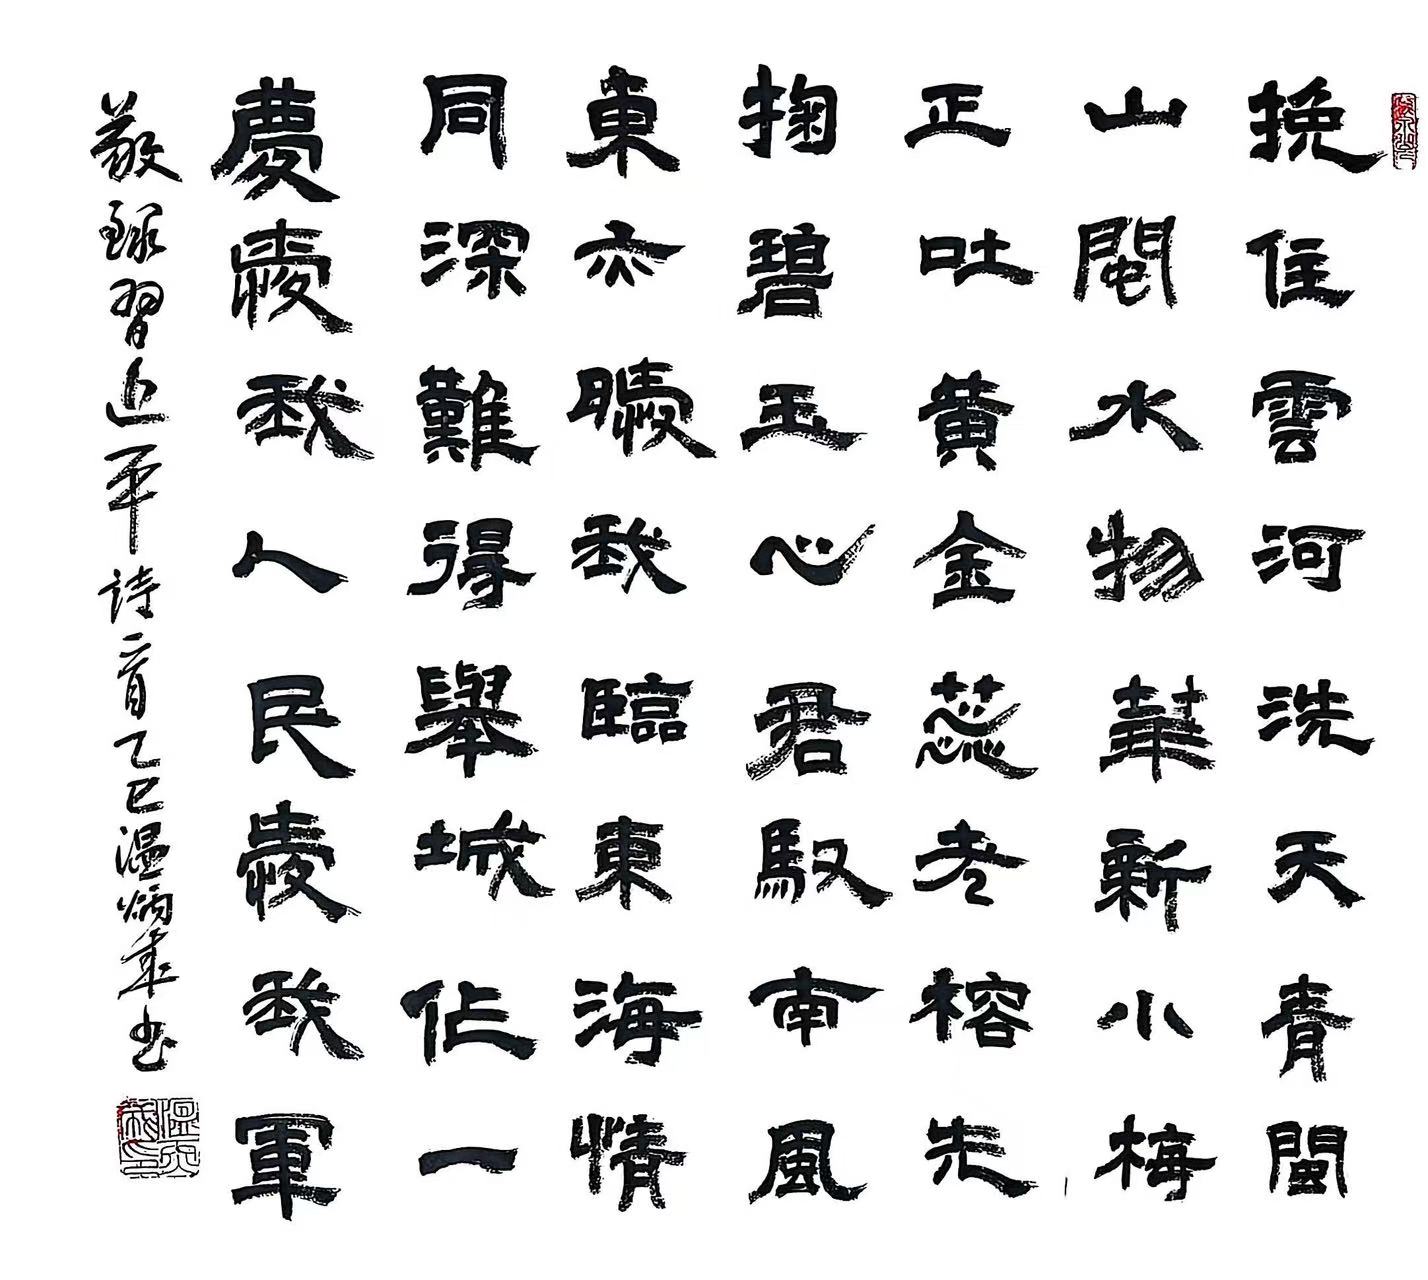 挽住雲河洗天青閩
山閩水物華新小梅
正吐黃金蕊老榕先
掬碧玉心君馭南風
東亦曖我臨東海情
同深難得舉城作一
慶愛我人民愛我軍
敬録習近平詩一首乙巳温炳華书